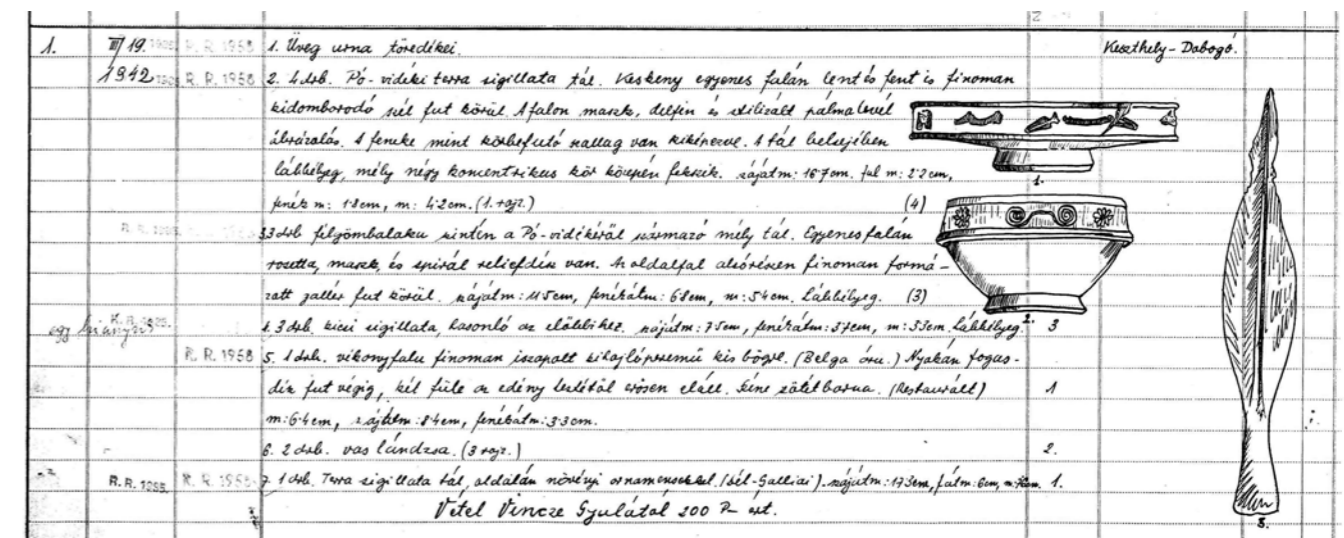 1. III 19. R. R. 1958 1. Üveg urna töredékei. Keszthely-Dobogó.
1942 R. R. 1958 2. 4 drb. Pó-vidéki terra sigillata tál. Keskeny egyenes falán lent és fent is finoman
kidomborodó szél fut körül. A falon maszk, delfin és stilizált pálmalevél
ábrázolás. A feneke mint körbefutó van kiképezve. A tál belsejében
lábbélyeg, mély négy koncentrikus kör közepén fekszik. szájátm: 16·7cm. fal m: 2·2cm,
fenék m: 1·8cm, m: 4·2cm. (1. rajz.) (4)
1.
3. 3 drb félgömbalaku szintén a Pó-vidékéről származó mély tál. Egyenes falán
rosetta, maszk, és spirál reliefdísz van. Az oldalfal alsó részen finoman formá-
zott gallér fut körül. szájátm: 11·5cm, fenékátm: 6·8cm, m: 5·4cm. Lábbélyeg. (3)
2.
egy hiányzik 4. 3 drb. kicsi sigillata, hasonló az előbbihez. szájátm: 7·5cm, fenékátm: 3·7cm, m: 3·3cm. Lábbélyeg. 3
R. R. 1958 5. 1 drb. vékonyfalu finoman iszapolt kihajlóperemű kis bögre. (Belga áru.) Nyakán fogas-
dísz fut végig, két füle az edény testétől erősen eláll. Színe sötétbarna. (Restaurált) 1
m: 6·4cm, szájátm: 8·4cm, fenékátm: 3·3cm.
6. 2 drb. vas lándzsa. (3 rajz.) 2.
R. R. 1955. R. R. 1958 7. 1 drb. Terra sigillata tál, oldalán növényi ornamensekkel. (dél-Galliai). szájátm: 17·3cm, f.átm: 6cm, 1.
Vétel Vincze Gyulától 200 P-ért.
3.